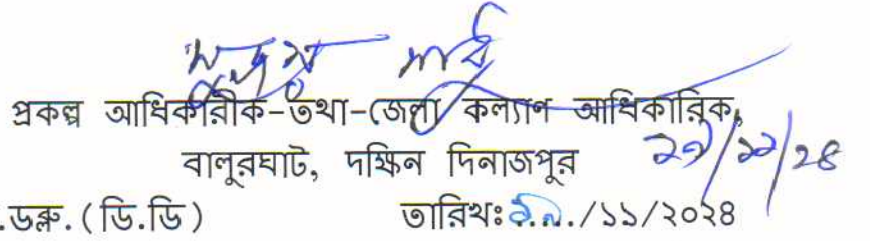 প্রকল্প আধিকারীক-তথা-জেলা কল্যাণ আধিকারিক,
বালুরঘাট, দক্ষিন দিনাজপুর
.ডব্লু. (ডি.ডি) তারিখঃ...../১১/২০২৪